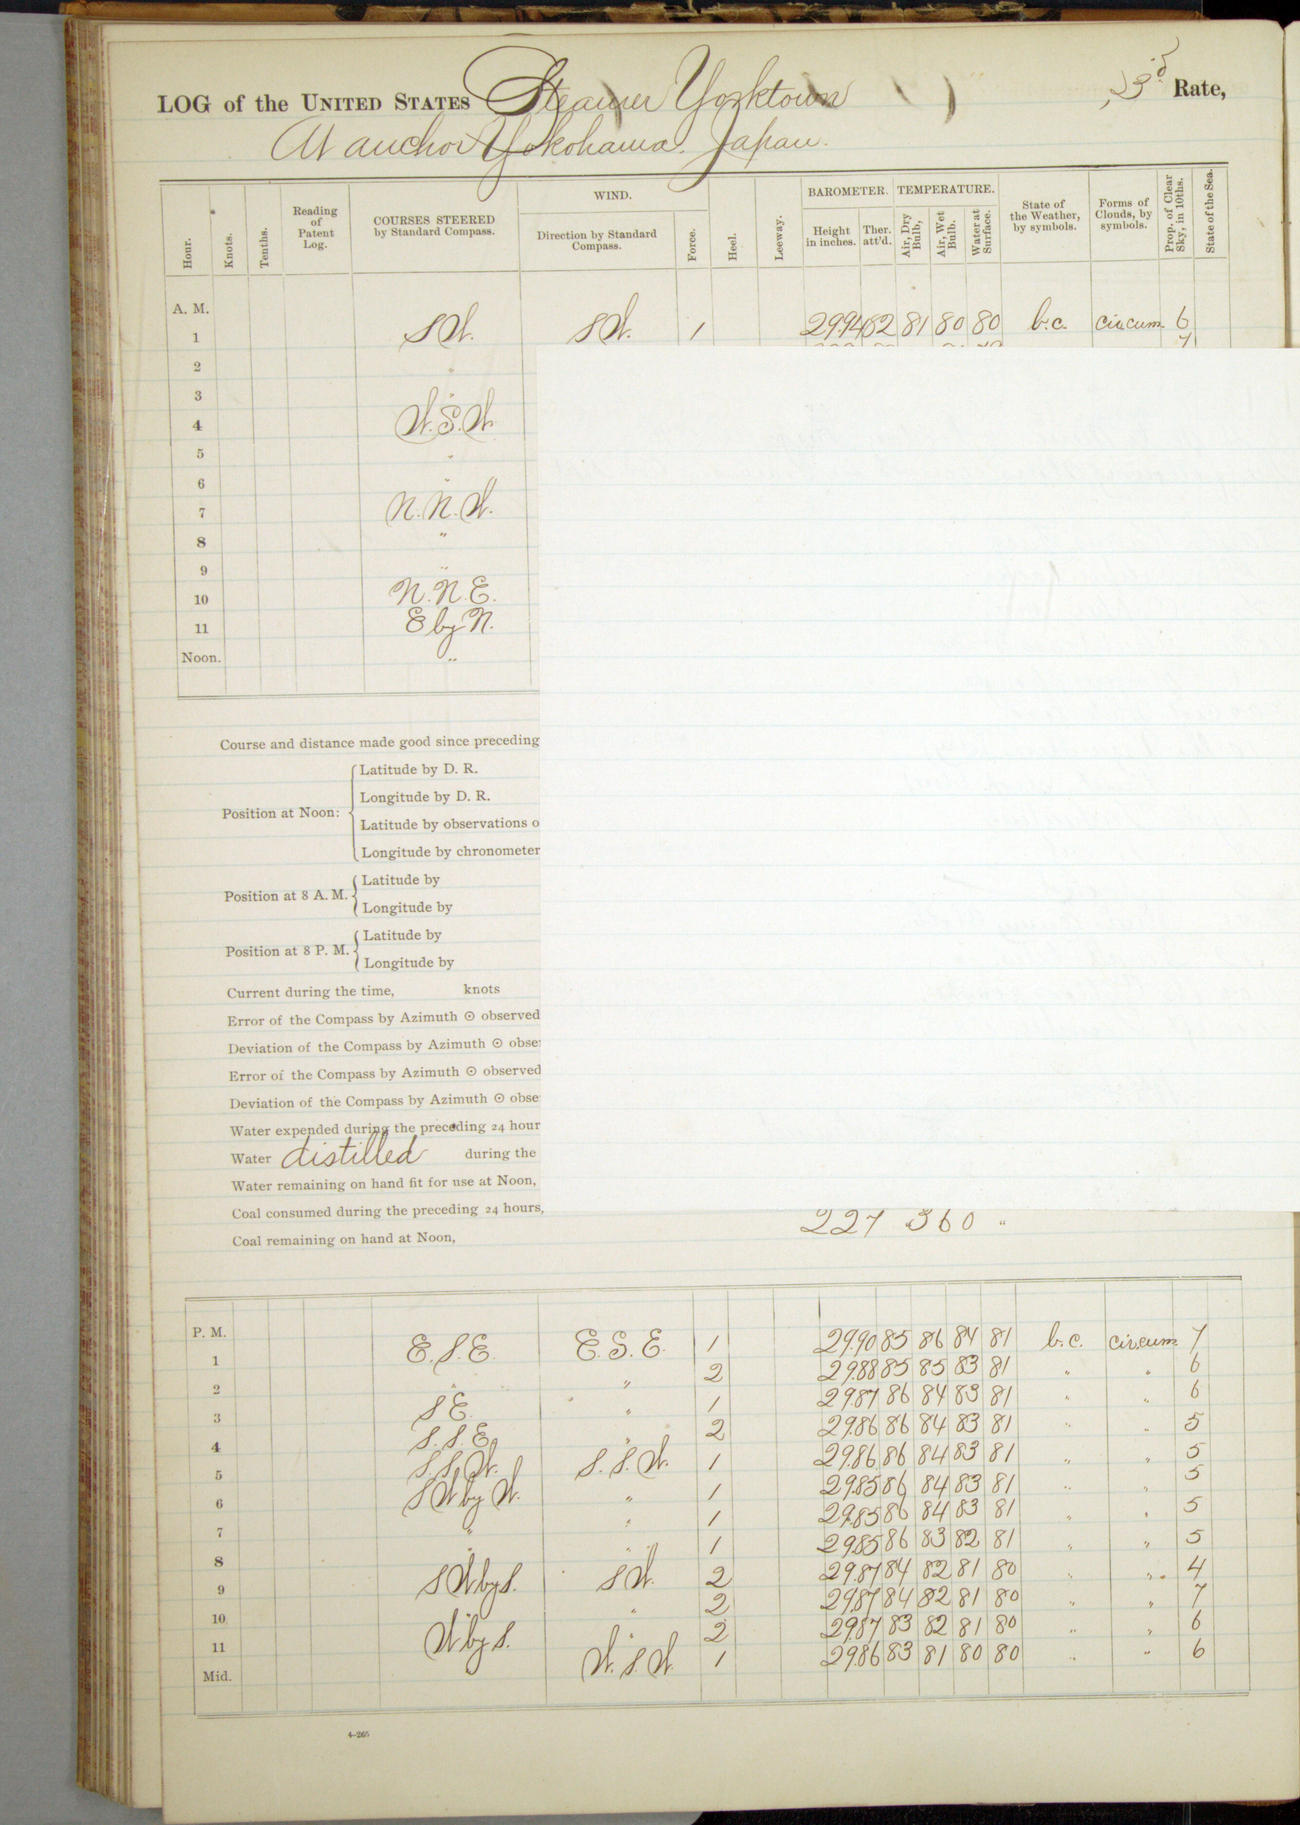 LOG of the UNITED STATES Steamer Yorktown ( ) , 3d Rate,
At anchor Yokohama. Japan.
Hour. Knots. Tenths. Reading of Patent Log. COURSES STEERED by Standard Compass. WIND. Direction by Standard Compass. Force. Heel. Leeway. BAROMETER. Height in inches. Ther. att'd. TEMPERATURE. Air, Dry Bulb, Air, Wet Bulb. Water at Surface. State of the Weather, by symbols. Forms of Clouds, by symbols. Prop. of Clear Sky, in 10ths. State of the Sea.
A. M.
1 SW. SW. 1 29.94 82 81 80 80 b.c. cir.cum. 6
2 "
3 "
4 W.S.W.
5 "
6 "
7 N.N.W.
8 "
9 "
10 N.N.E.
11 E by N.
Noon. "
Course and distance made good since preceding
Position at Noon:
Latitude by D. R.
Longitude by D. R.
Latitude by observations o
Longitude by chronometer
Position at 8 A. M.
Latitude by
Longitude by
Position at 8 P. M.
Latitude by
Longitude by
Current during the time, knots
Error of the Compass by Azimuth ⊙ observed
Deviation of the Compass by Azimuth ⊙ obse
Error of the Compass by Azimuth ⊙ observed
Deviation of the Compass by Azimuth ⊙ obse
Water expended during the preceding 24 hour
Water distilled during the
Water remaining on hand fit for use at Noon,
Coal consumed during the preceding 24 hours,
Coal remaining on hand at Noon, 227 360 "
P. M.
1 E.S.E. E.S.E. 1 29.90 85 86 84 81 b.c. cir.cum. 7
2 " " 2 29.88 85 85 83 81 " " 6
3 SE. " 1 29.87 86 84 83 81 " " 6
4 S.S.E. " 2 29.86 86 84 83 81 " " 5
5 S.S.W. S.S.W. 1 29.86 86 84 83 81 " " 5
6 SW by W. " 1 29.85 86 84 83 81 " " 5
7 " " 1 29.85 86 84 83 81 " " 5
8 " " 1 29.85 86 83 82 81 " " 5
9 SW by S. SW. 2 29.87 84 82 81 80 " " 4
10 " " 2 29.87 84 82 81 80 " " 7
11 W by S. " 2 29.87 83 82 81 80 " " 6
Mid. W.S.W. 1 29.86 83 81 80 80 " " 6
4-265